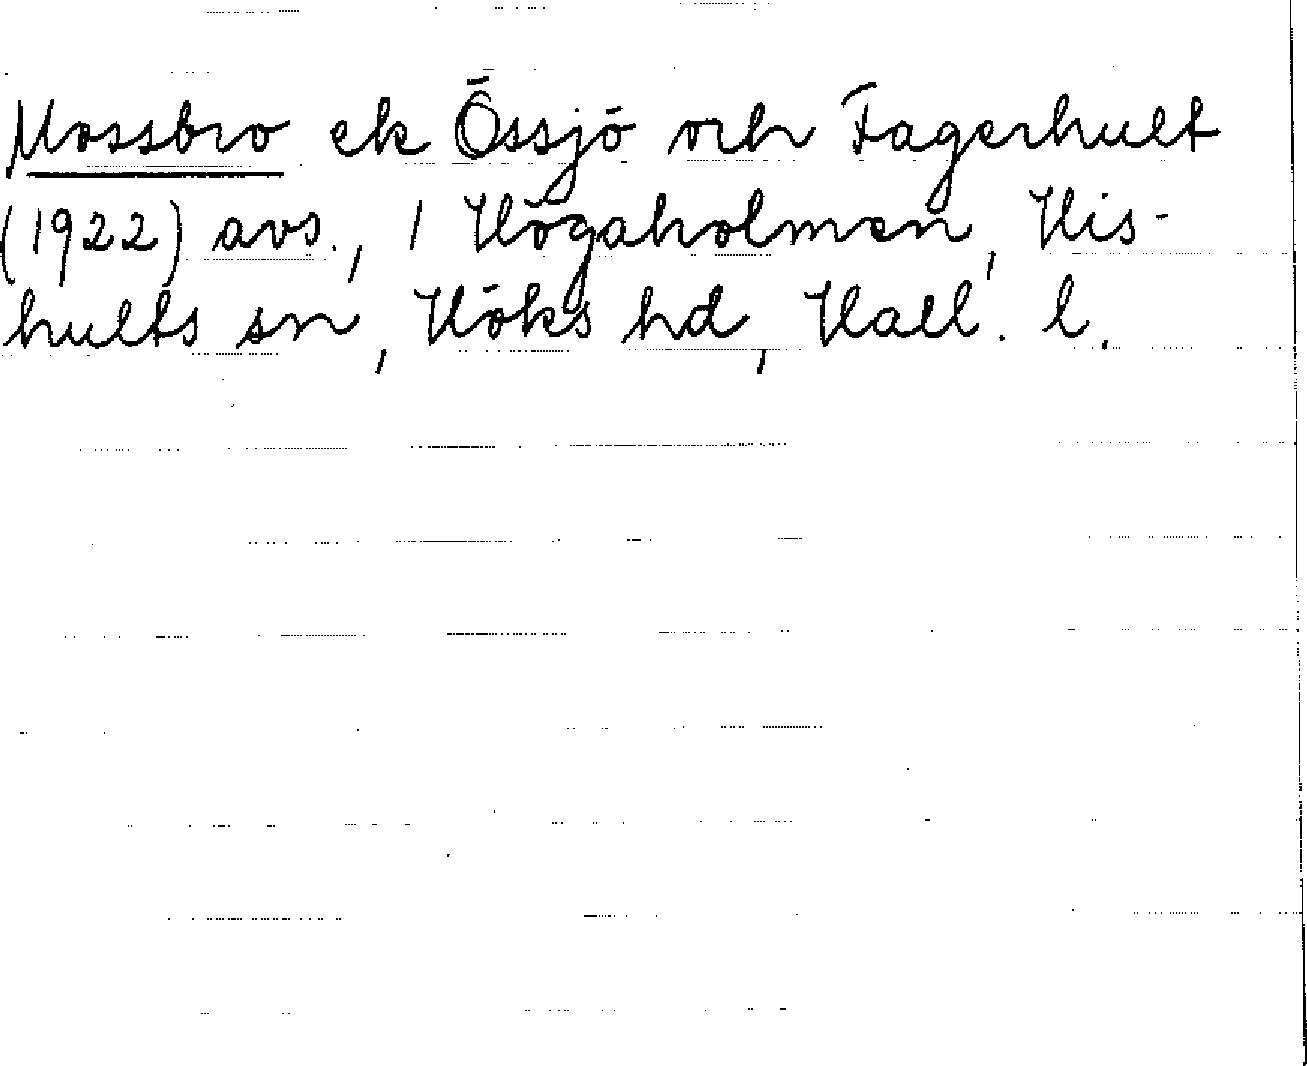 Mossbro ek Össjö och Fagerhult
(1922) avs., 1 Högaholmen, His-
hults sn, Höks hd, Hall. l.